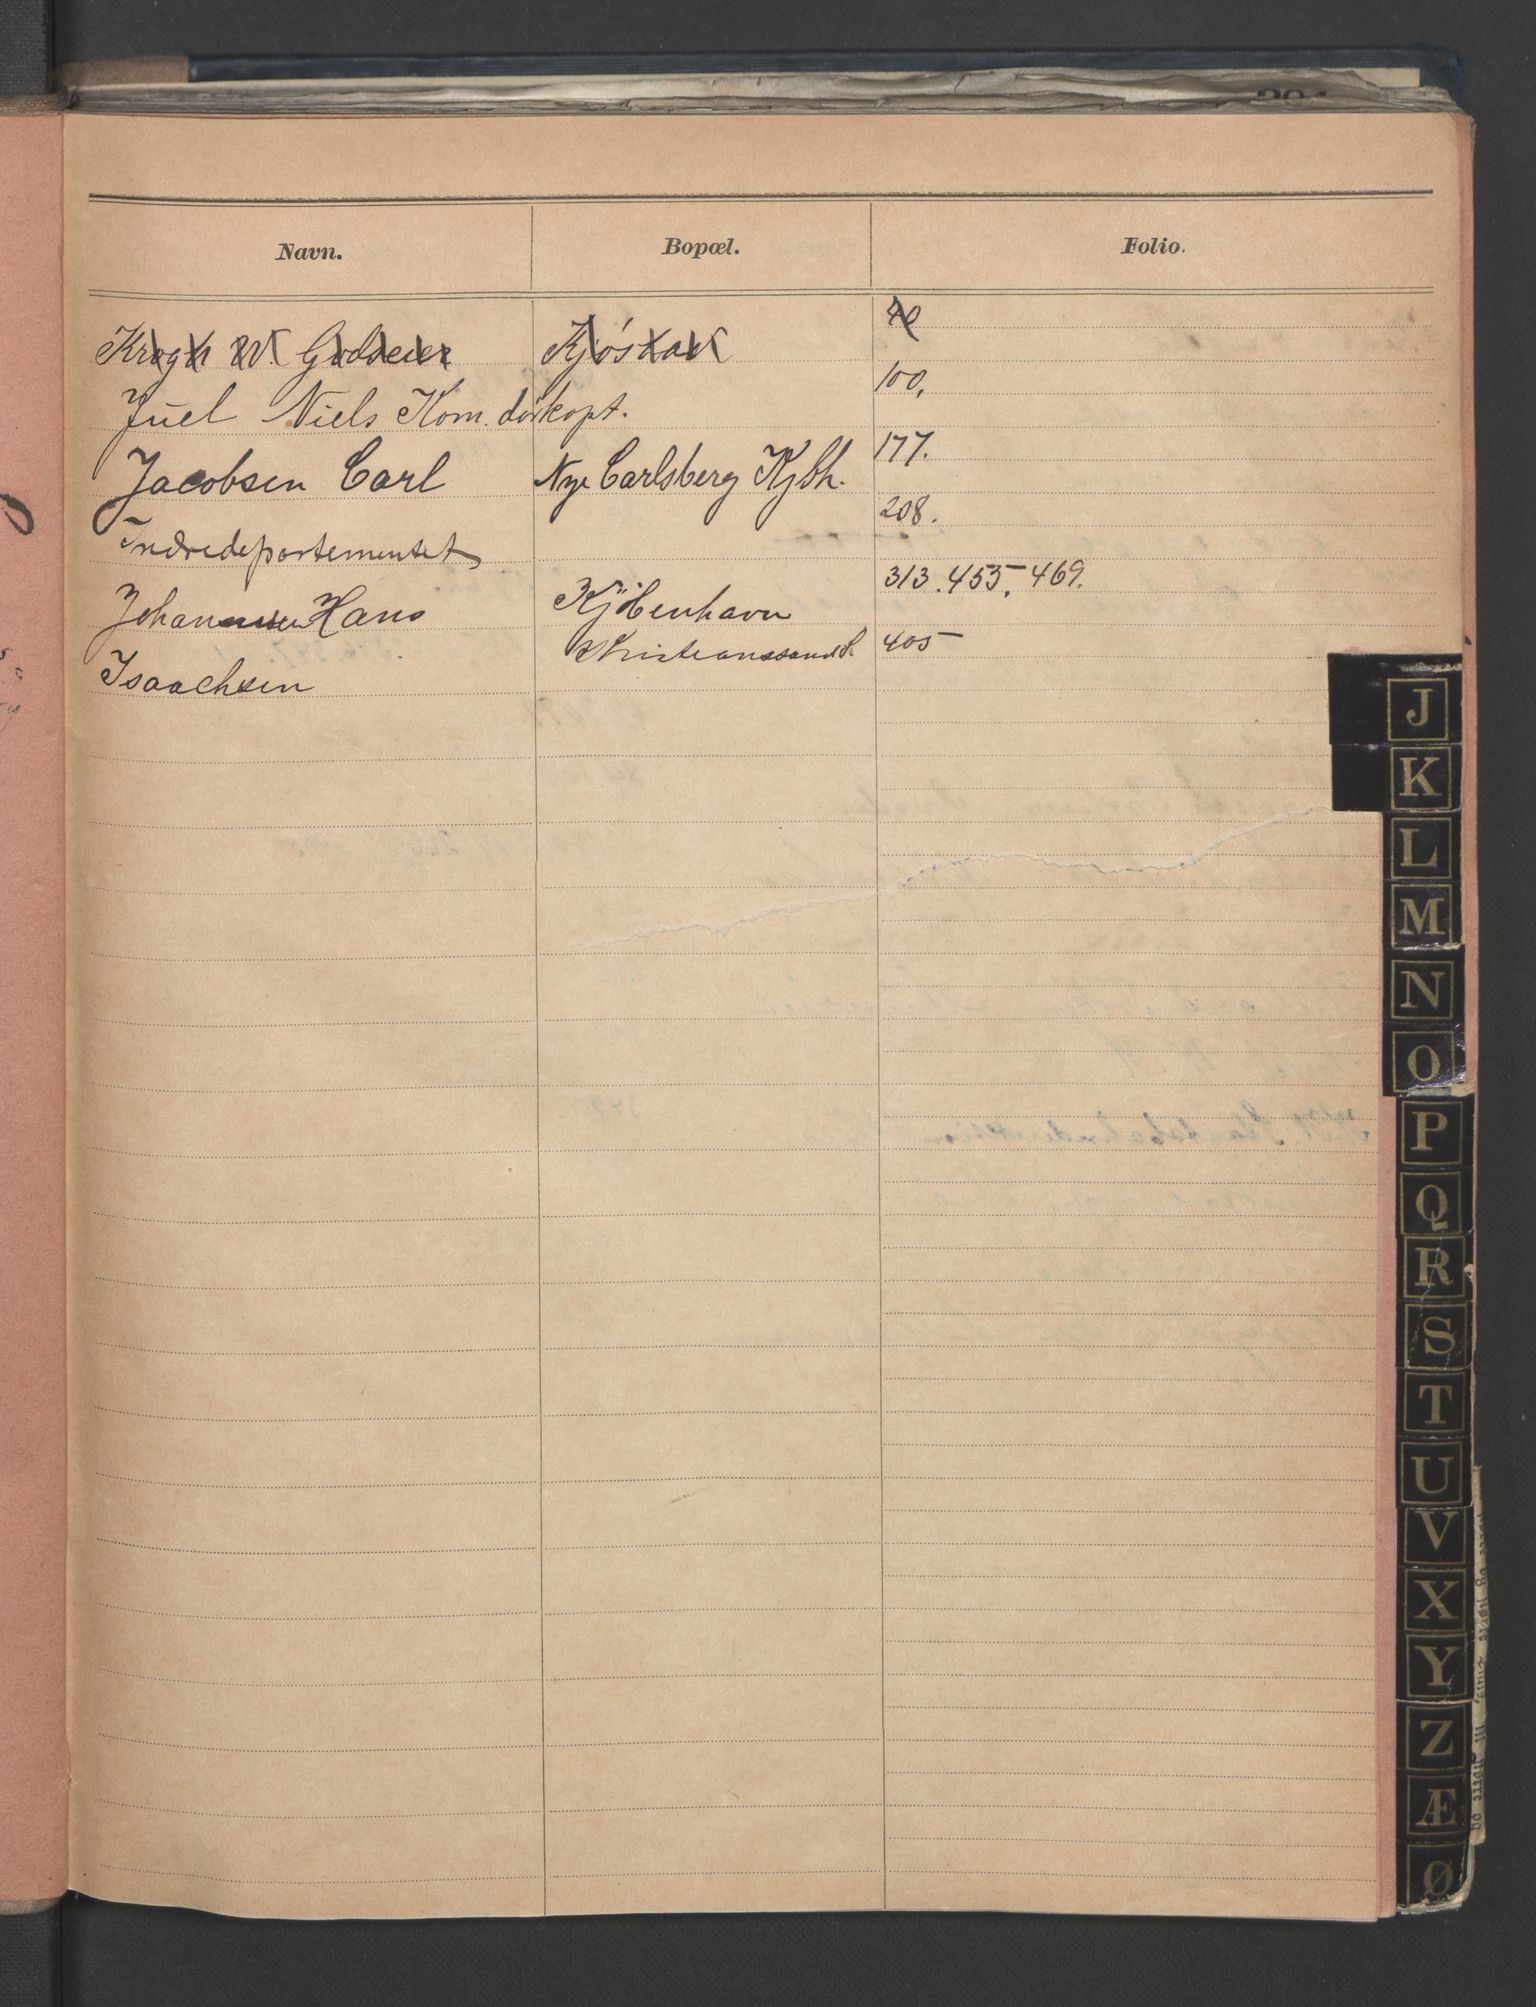 Navn. Bopæl. Folio.
Krogh W. Godseier Kjós 40
Juel Niels Kom. dørkapt. 100.
Jacobsen Carl Nye Carlsberg Kjbh. 177.
Indredepartementet 208.
Johannsen Hans Kjöbenhavn 313. 455, 469.
Isaachsen Kristianssand S. 405
J
K
L
M
N
O
P
Q
R
S
T
U
V
X
Y
Z
Æ
Ø